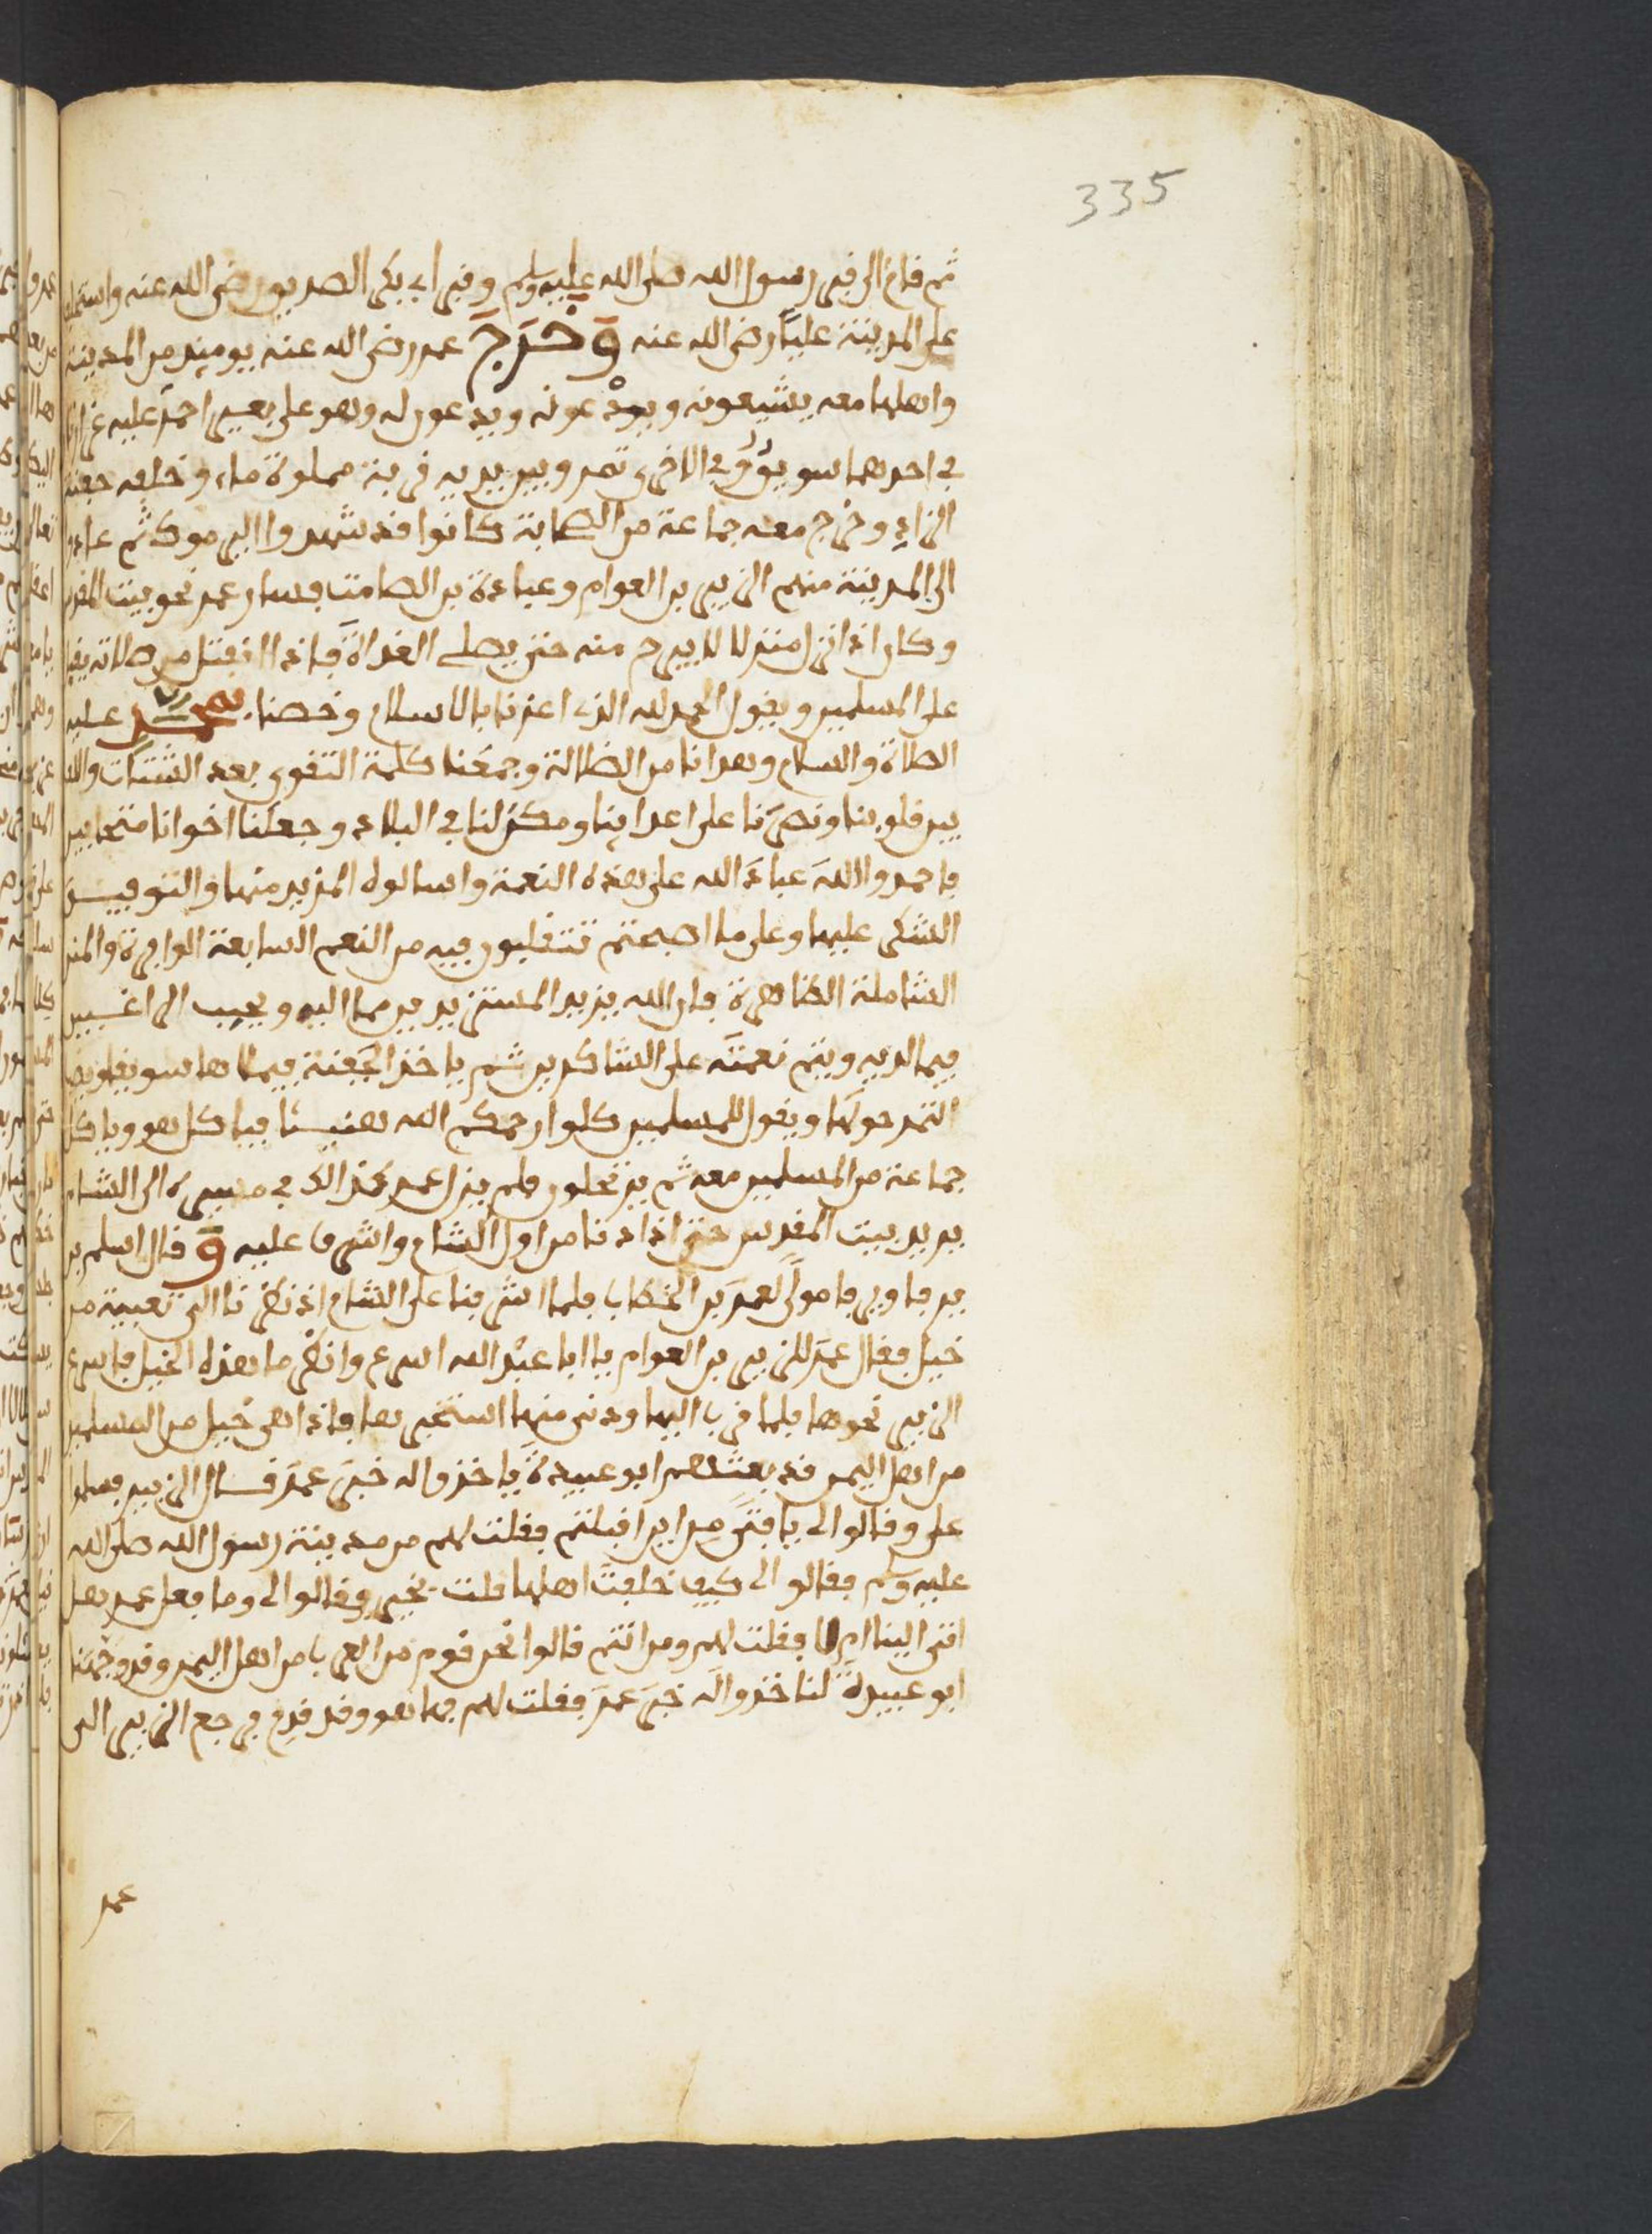 335
ثم قام الى قبر رسول الله صلى الله عليه وسلم وقبر ابي بكر الصديق رضي الله عنه واستخلف
على المدينة عليا رضي الله عنه وَخَرَجَ عمر رضي الله عنه يومئذ من المدينة
واهلها معه يشيعونه ويودعونه ويدعون له وهو على بعير احمر عليه غرارتان
في احدهما سويق وفي الاخرى تمر وبين يديه قربة مملوءة ماء وخلفه جفنة
الزاد وخرج معه جماعة من الصحابة كانوا قد شهدوا اليرموك ثم عادوا
الى المدينة منهم الزبير بن العوام وعبادة بن الصامت فسار عمر نحو بيت المقدس
وكان اذا نزل منزلا لا يبرح منه حتى يصلي الغداة فاذا انفتل من صلاته يقبل
على المسلمين ويقول الحمد لله الذي اعزنا بالاسلام وخصنا بمحمد عليه
الصلاة والسلام وهدانا من الضلالة وجمعنا كلمة التقوى بعد الشتات والف
بين قلوبنا ونصرنا على اعدائنا ومكن لنا في البلاد وجعلنا اخوانا متحابين
فاحمدوا الله عباد الله على هذه النعمة واسالوه المزيد منها والتوفيق
الشكر عليها وعلى ما اصبحتم تتقلبون فيه من النعم السابغة الوافرة والمنن
الشاملة الظاهرة فان الله يزيد المستزيدين مما اليه ويجيب الراغبين
فيما لديه ويتم نعمته على الشاكرين ثم ياخذ الجفنة فيملاها سويقا ويضع
التمر حولها ويقول للمسلمين كلوا رحمكم الله هنيئا فياكل هو وياكل
جماعة من المسلمين معه ثم يرتحلون فلم يزل عمر كذالك في مسيره الى الشام
يريد بيت المقدس حتى اذا دنا من اول الشام واشرف عليه وَ قال اسلم بن
برقا وبرقا مولى لعمر بن الخطاب فلما اشرفنا على الشام اذ نظرنا الى تعبية من
خيل فقال عمر للزبير بن العوام يا ابا عبد الله اسرع وانظر ما هذه الخيل فاسرع
الزبير نحوها فلما قرب اليها ودنى منها استخبرها فاذا هي خيل من المسلمين
من اهل اليمن قد بعثهم ابو عبيدة ياخذوا له خبر عمر قال الزبير فسلموا
علي وقالوا لي يا فتى من اين اقبلتم فقلت لهم من مدينة رسول الله صلى الله
عليه وسلم فقالوا لي كيف خلفت اهلها قلت بخير وقالوا لي وما فعل عمر هل
اتى الينا ام لا فقلت لهم ومن انتم قالوا نحن قوم من العرب من اهل اليمن وقد وجهنا
ابو عبيدة لناخذ له خبر عمر فقلت لهم فها هو وقد قدم فرجع الزبير الى
عمر